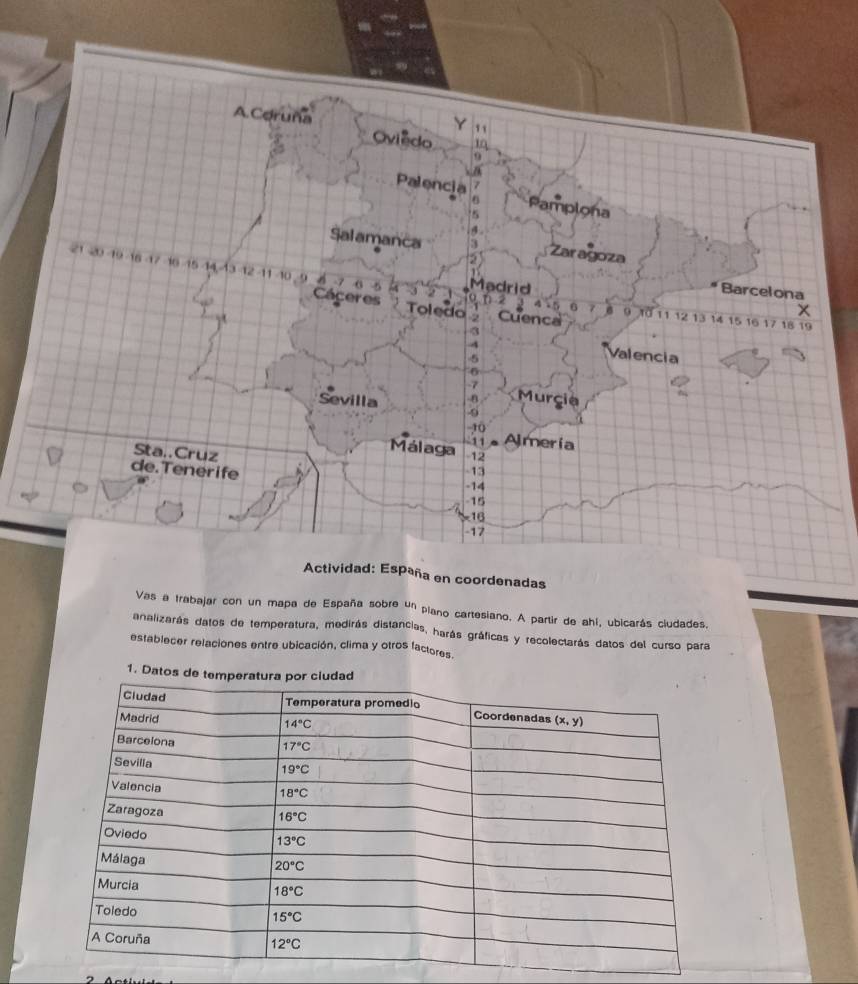 A.Coruña
Y
Oviedo
11
10
9
8
Palencia
7
6
Pamplona
5
4
Salamanca
3
Zaragoza
2
1
-21 -20 -19 -18 -17 -16 -15 -14 -13 -12 -11 -10 -9 -8 -7 -6 -5 -4 -3 -2 -1 0 1 2 3 4 5 6 7 8 9 10 11 12 13 14 15 16 17 18 19
Madrid
Barcelona
X
Cáceres
Toledo
Cuenca
-2
-3
-4
Valencia
-5
-6
-7
Sevilla
-8
Murcia
-9
-10
Málaga
-11
Almería
Sta..Cruz
de.Tenerife
-12
-13
-14
-15
-16
-17
Actividad: España en coordenadas
Vas a trabajar con un mapa de España sobre un plano cartesiano. A partir de ahí, ubicarás ciudades,
analizarás datos de temperatura, medirás distancias, harás gráficas y recolectarás datos del curso para
establecer relaciones entre ubicación, clima y otros factores.
1. Datos de temperatura por ciudad
Ciudad Temperatura promedio Coordenadas (x, y)
Madrid 14°C
Barcelona 17°C
Sevilla 19°C
Valencia 18°C
Zaragoza 16°C
Oviedo 13°C
Málaga 20°C
Murcia 18°C
Toledo 15°C
A Coruña 12°C